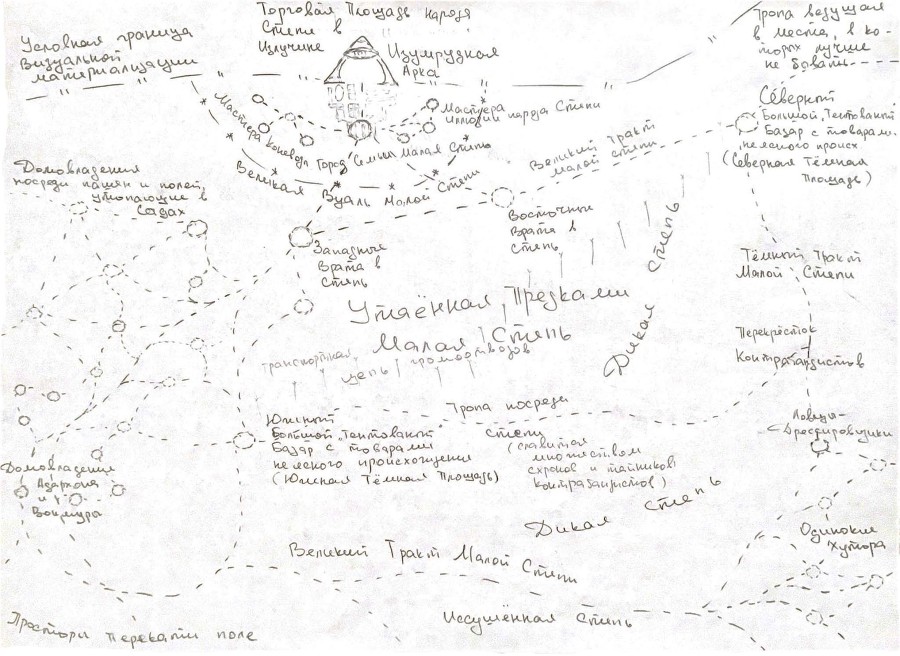 Торговая Площадь народа
Степи в
Излучине
Изумрудная
Арка
Условная граница
Визуальной
материализации
Тропа ведущая
в места, в ко-
торых лучше
не бывать
Мастера коневод
Мастера
иллюзий народа Степи
Город Семьи Малая Степь
Великая Вуаль Малой Степи
Великий Тракт
Малой степи
Северный
Большой, Тентованный
Базар с товарами
неясного происх.
(Северная Тёмная
Площадь)
Домовладения
посреди пашен и полей,
утопающие в
Садах
Западные
Врата в
Степь
Восточные
Врата в
Степь
Дикая Степь
Тёмный Тракт
Малой Степи
Утаённая Предками
Малая Степь
транспортная
цепь громоотводов
Перекрёсток
Контрабандистов
Тропа посреди
Степи
(славится
множеством
схронов и тайников
контрабандистов)
Южный
Большой, Тентованный
Базар с товарами
неясного происхождения
(Южная Тёмная Площадь)
Ловцы-
Дрессировщики
Домовладения
Адархона
и
Вокмура
Дикая Степь
Одинокие
Хутора
Великий Тракт Малой Степи
Иссушённая Степь
Просторы Перекати поле